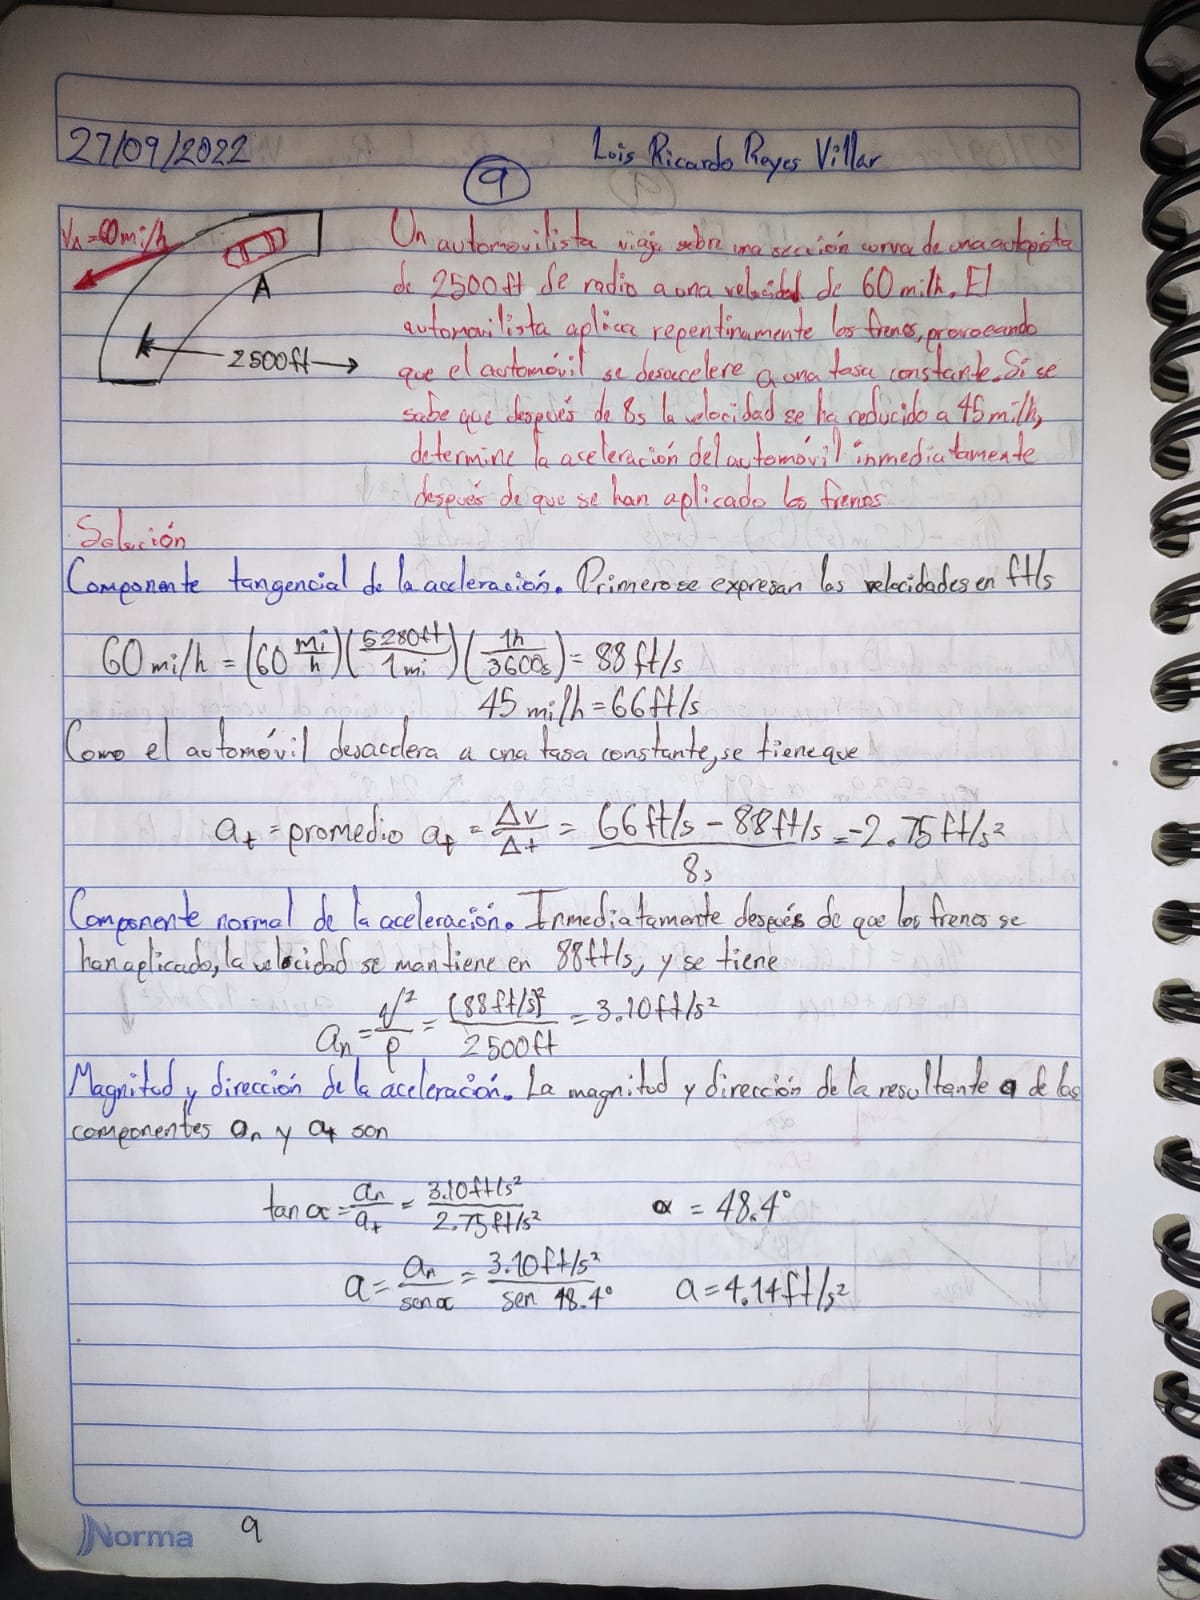 27/09/2022 Luis Ricardo Reyes Villar
9
VA = 60mi/h
A
2500ft
Un automovilista viaja sobre una sección curva de una autopista
de 2500ft de radio a una velocidad de 60 mi/h. El
automovilista aplica repentinamente los frenos, provocando
que el automóvil se desacelere a una tasa constante. Si se
sabe que después de 8s la velocidad se ha reducido a 45 mi/h,
determine la aceleración del automóvil inmediatamente
después de que se han aplicado los frenos
Solución
Componente tangencial de la aceleración. Primero se expresan las velocidades en ft/s
60 mi/h = (60 mi/h)(5280ft/1mi)(1h/3600s) = 88 ft/s
45 mi/h = 66ft/s
Como el automóvil desacelera a una tasa constante, se tiene que
at = promedio at = Δv/Δt = (66ft/s - 88ft/s)/8s = -2.75ft/s²
Componente normal de la aceleración. Inmediatamente después de que los frenos se
han aplicado, la velocidad se mantiene en 88ft/s, y se tiene
an = v²/ρ = (88ft/s)²/2500ft = 3.10ft/s²
Magnitud y dirección de la aceleración. La magnitud y dirección de la resultante a de las
componentes an y at son
tan α = an/at = 3.10ft/s²/2.75ft/s² α = 48.4°
a = an/sen α = 3.10ft/s²/sen 48.4° a = 4.14ft/s²
Norma 9